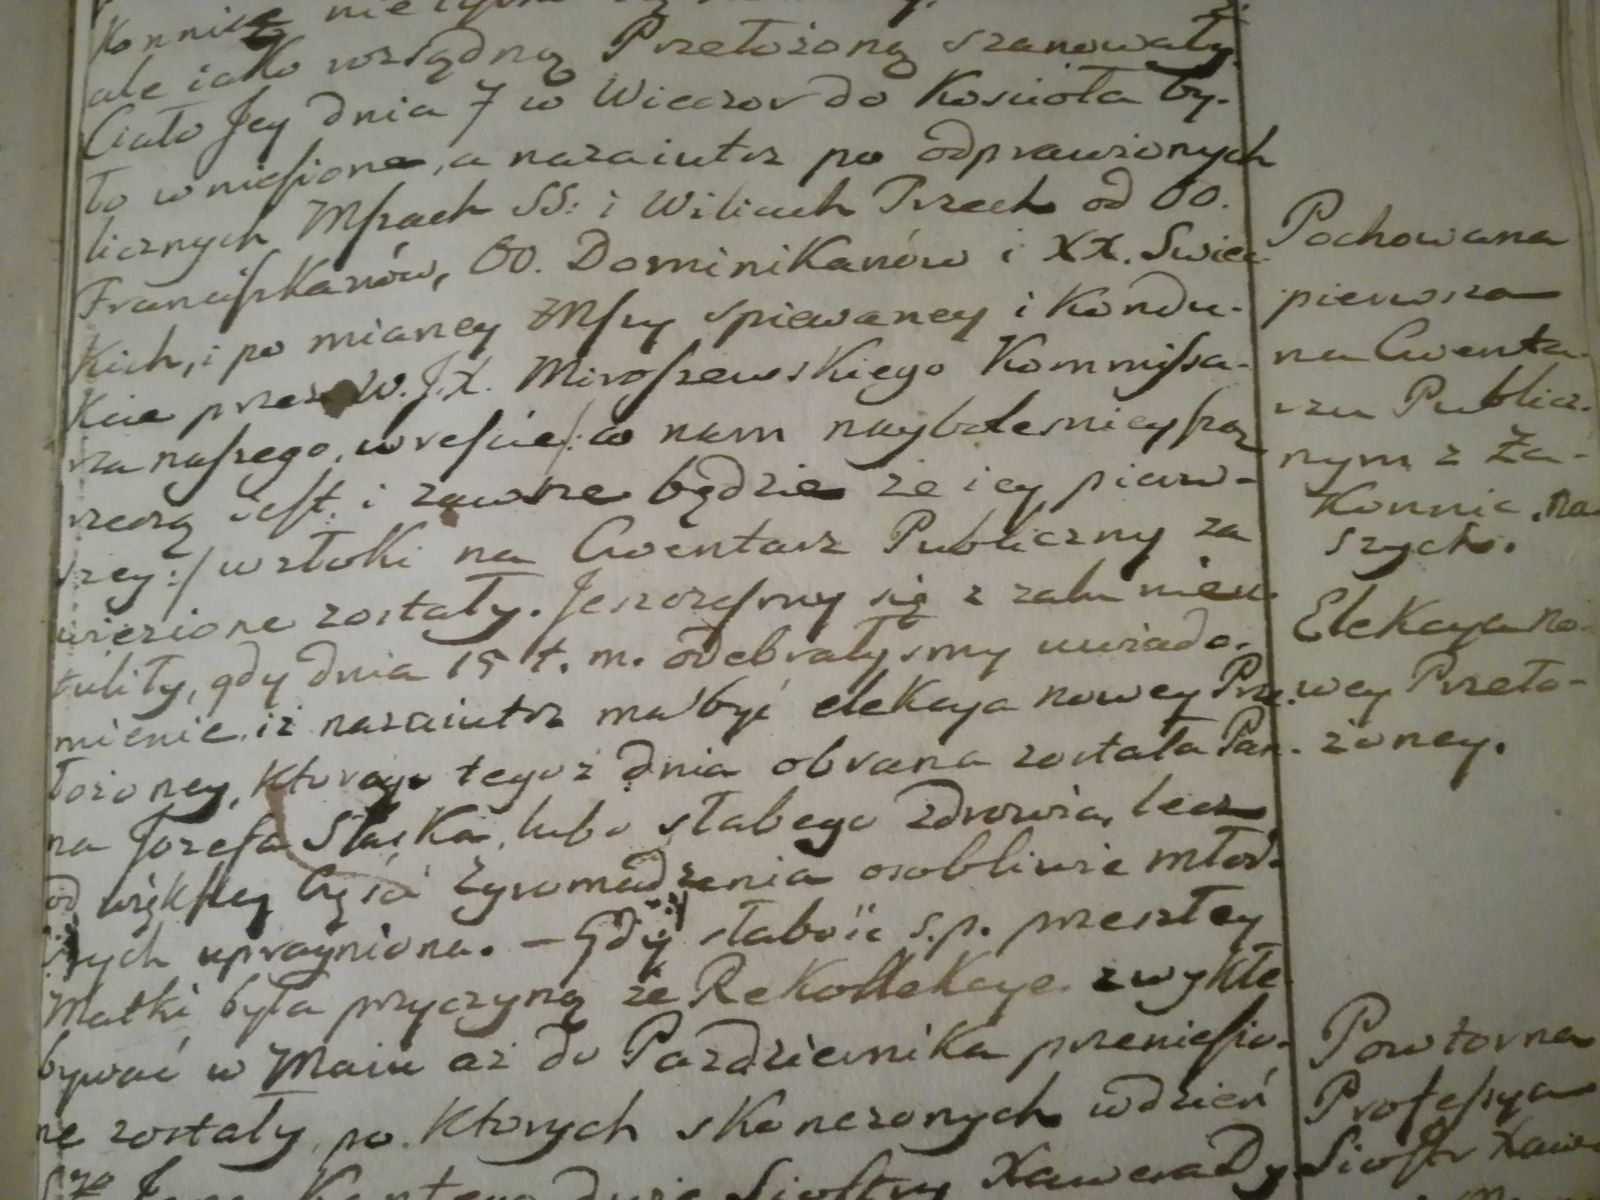 Konnice nietylko
ale iako rozsądną Przełożoną szanowały.
Ciało Jey dnia 7 w Wieczor do Kościoła by-
ło wniesione, a nazaiutrz po odprawionych
licznych Mszach SS: i Wiliach Trzech od OO.
Franciszkanów, OO. Dominikanów i XX. Swiec-
kich, i po mianey Mszy spiewaney i Kondu-
kcie przez W.J.X. Miroszewskiego Kommissa-
rza naszego, wreście /: co nam nayboleśnieyszą
rzeczą iest, i zawsze będzie że iey pierw-
szey :/ wzłoki na Cmentarz Publiczny za
wiezione zostały. Jeszczesmy się z zalu nieu-
tuliły, gdy dnia 15 t. m. odebrałysmy uwiado-
mienie iż nazaiutrz ma być elekcya nowey Prze-
łożoney, ktorą tegoż dnia obrana została Pan-
na Jozefa Staska, lubo słabego zdrowia, lecz
od większey części Zgromadzenia osobliwie młod-
szych upragniona. – Gdy słabość s.p. przeszłey
Matki była przyczyną że Rekollekcye zwykłe
bywać w Maiu aż do Pazdziernika przeniesio-
ne zostały, po ktorych skonczonych w dzień
Sgo Jana Kantego dwie Siostry Xawera
Pochowana
pierwsza
na Cmenta-
rzu Publicz-
nym z Za-
konnic na
szych.
Elekcya no-
wey Przeło-
żoney.
Powtorna
Professya
Siostr Xawe